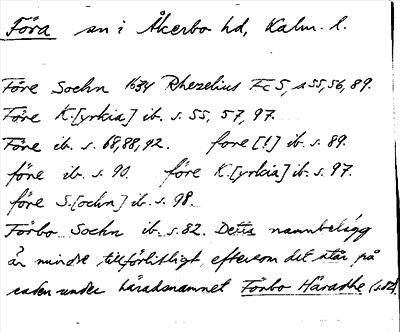 Föra sn i Åkerbo hd, Kalm. l.
Före Sochn 1634 Rhezelius Fc5, s 55, 56, 89.
Före K.[yrkia] ib. s. 55, 57, 97.
Före ib. s. 68, 88, 92. fore [!] ib. s. 89.
före ib. s. 90. före K.[yrkia] ib. s. 97.
före S.[ochn] ib. s. 98.
Förbo Sochn ib. s. 82. Detta namnbelägg
är mindre tillförlitligt, eftersom det står på
raden under häradsnamnet Förbo Häradhe (s. 82).